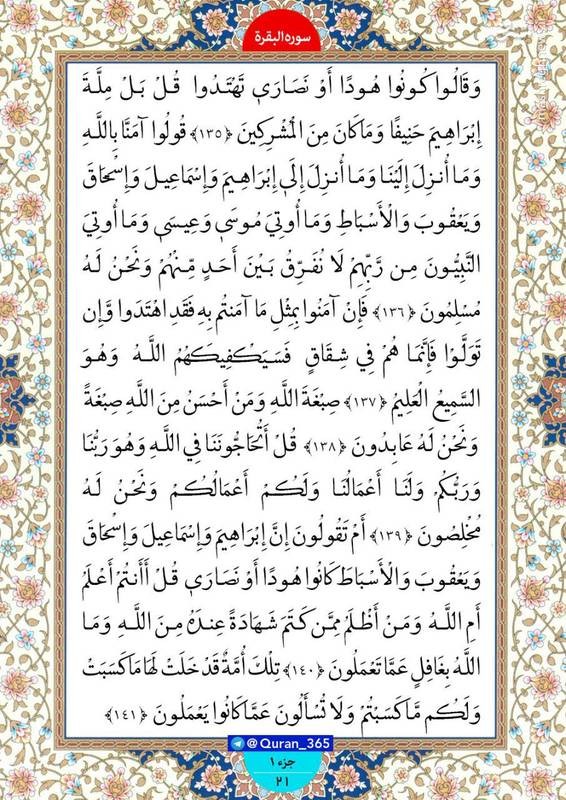 سوره البقرة
وَقَالُوا كُونُوا هُودًا أَوْ نَصَارَىٰ تَهْتَدُوا قُلْ بَلْ مِلَّةَ
إِبْرَاهِيمَ حَنِيفًا وَمَا كَانَ مِنَ الْمُشْرِكِينَ ﴿١٣٥﴾ قُولُوا آمَنَّا بِاللَّهِ
وَمَا أُنزِلَ إِلَيْنَا وَمَا أُنزِلَ إِلَىٰ إِبْرَاهِيمَ وَإِسْمَاعِيلَ وَإِسْحَاقَ
وَيَعْقُوبَ وَالْأَسْبَاطِ وَمَا أُوتِيَ مُوسَىٰ وَعِيسَىٰ وَمَا أُوتِيَ
النَّبِيُّونَ مِن رَّبِّهِمْ لَا نُفَرِّقُ بَيْنَ أَحَدٍ مِّنْهُمْ وَنَحْنُ لَهُ
مُسْلِمُونَ ﴿١٣٦﴾ فَإِنْ آمَنُوا بِمِثْلِ مَا آمَنتُم بِهِ فَقَدِ اهْتَدَوا وَّإِن
تَوَلَّوْا فَإِنَّمَا هُمْ فِي شِقَاقٍ فَسَيَكْفِيكَهُمُ اللَّهُ وَهُوَ
السَّمِيعُ الْعَلِيمُ ﴿١٣٧﴾ صِبْغَةَ اللَّهِ وَمَنْ أَحْسَنُ مِنَ اللَّهِ صِبْغَةً
وَنَحْنُ لَهُ عَابِدُونَ ﴿١٣٨﴾ قُلْ أَتُحَاجُّونَنَا فِي اللَّهِ وَهُوَ رَبُّنَا
وَرَبُّكُمْ وَلَنَا أَعْمَالُنَا وَلَكُمْ أَعْمَالُكُمْ وَنَحْنُ لَهُ
مُخْلِصُونَ ﴿١٣٩﴾ أَمْ تَقُولُونَ إِنَّ إِبْرَاهِيمَ وَإِسْمَاعِيلَ وَإِسْحَاقَ
وَيَعْقُوبَ وَالْأَسْبَاطَ كَانُوا هُودًا أَوْ نَصَارَىٰ قُلْ أَأَنتُمْ أَعْلَمُ
أَمِ اللَّهُ وَمَنْ أَظْلَمُ مِمَّن كَتَمَ شَهَادَةً عِندَهُ مِنَ اللَّهِ وَمَا
اللَّهُ بِغَافِلٍ عَمَّا تَعْمَلُونَ ﴿١٤٠﴾ تِلْكَ أُمَّةٌ قَدْ خَلَتْ لَهَا مَا كَسَبَتْ
وَلَكُم مَّا كَسَبْتُمْ وَلَا تُسْأَلُونَ عَمَّا كَانُوا يَعْمَلُونَ ﴿١٤١﴾
@Quran_365
جزء ١
٢١